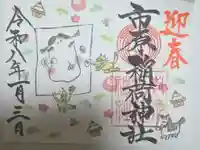 迎春
市杵稲荷神社
令和八年一月三日